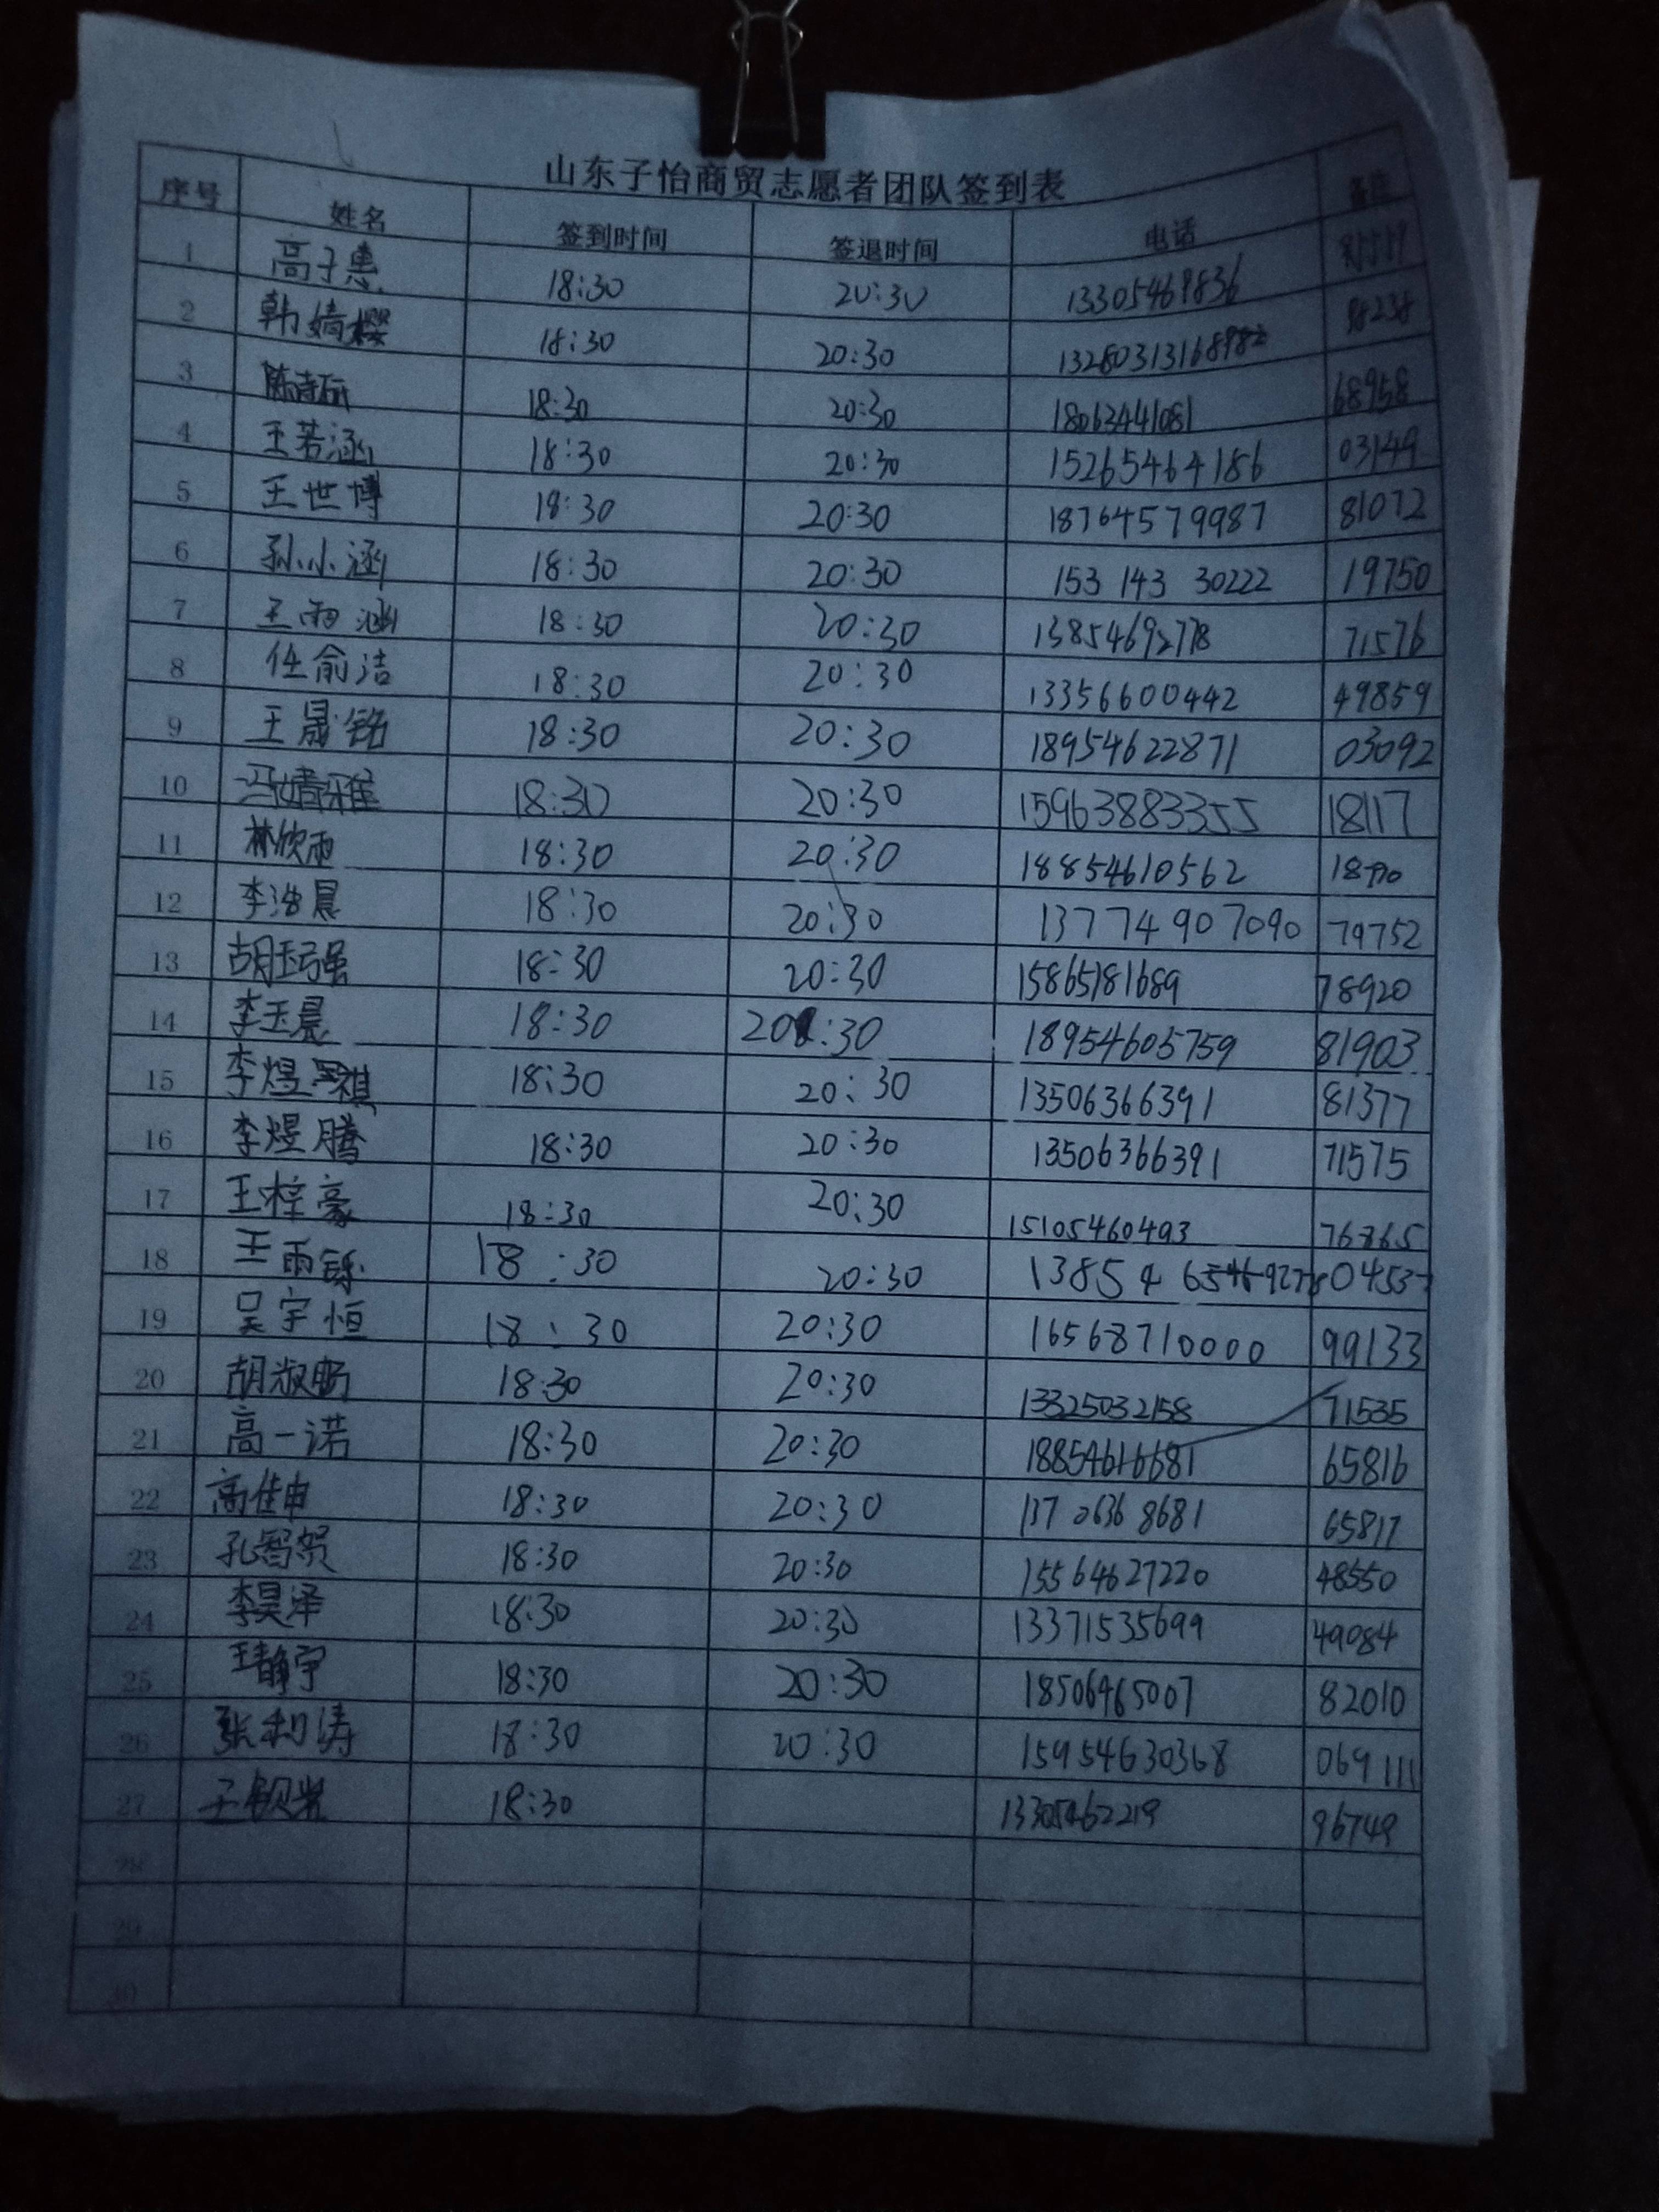 山东子怡商贸志愿者团队签到表
序号 姓名 签到时间 签退时间 电话 备注
1 高子惠 18:30 20:30 13305469836
2 韩婧樱 18:30 20:30 98238
3 陈诗 18:30 20:30 18063441081 68958
4 王若涵 18:30 20:30 15265464186 03149
5 王世博 18:30 20:30 18764579987 81072
6 孙小涵 18:30 20:30 153 143 30222 19750
7 王雨涵 18:30 20:30 13854692778 71576
8 任俞洁 18:30 20:30 13356600442 49859
9 王晟铭 18:30 20:30 18954622871 03092
10 冯婧雅 18:30 20:30 15963883355 18117
11 林欣雨 18:30 20:30 18854610562
12 李浩晨 18:30 20:30 13774907090 79752
13 胡钰强 18:30 20:30 15865181689 78920
14 李玉晨 18:30 20:30 18954605759 81903
15 李煜祺 18:30 20:30 13506366391 81377
16 李煜腾 18:30 20:30 13506366391 71575
17 王梓豪 18:30 20:30 15105460493 76865
18 王雨 18:30 20:30
19 吴宇恒 18:30 20:30 16568710000 99133
20 胡淑畅 18:30 20:30 13325032158 71535
21 高一诺 18:30 20:30 18854616681 65816
22 高佳申 18:30 20:30 137 0636 8681 65817
23 孔智贺 18:30 20:30 15564627220 48550
24 李昊泽 18:30 20:30 13371535699 49084
25 王静宇 18:30 20:30 18506465007 82010
26 张利涛 18:30 20:30 15954630368 069111
27 18:30 13305462219 96749
28
29
30